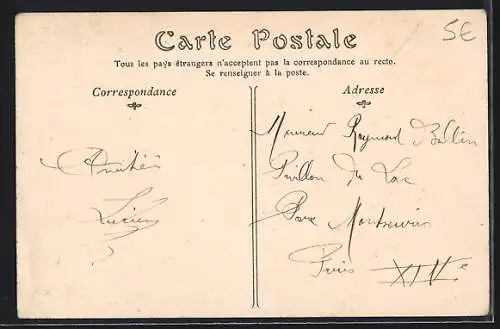 5E
Carte Postale
Tous les pays étrangers n'acceptent pas la correspondance au recto.
Se renseigner à la poste.
Correspondance
Amitiés
Lucien
Adresse
Monsieur Raymond
Pavillon du Lac
Parc Montsouris
Paris XIVe